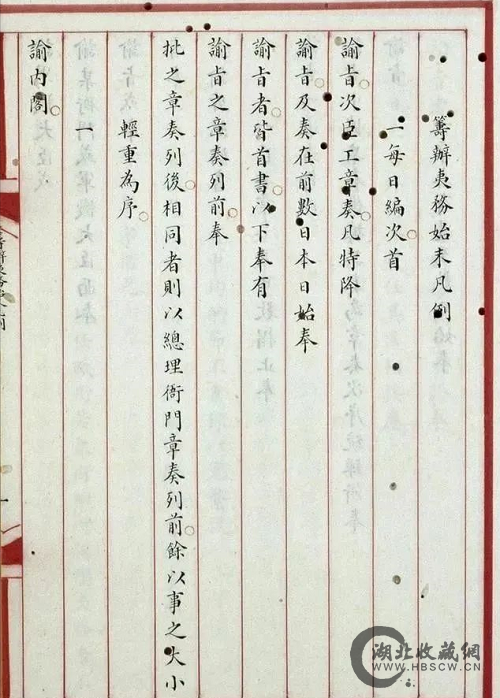 籌辦夷務始末凡例
一每日編次首
諭旨次臣工章奏凡特降
諭旨及奏在前數日本日始奉
諭旨者皆首書以下奉有
諭旨之章奏列前奉
批之章奏列後相同者則以總理衙門章奏列前餘以事之大小
輕重為序
一
諭內閣
湖北收藏網
WWW.HBSCW.CN